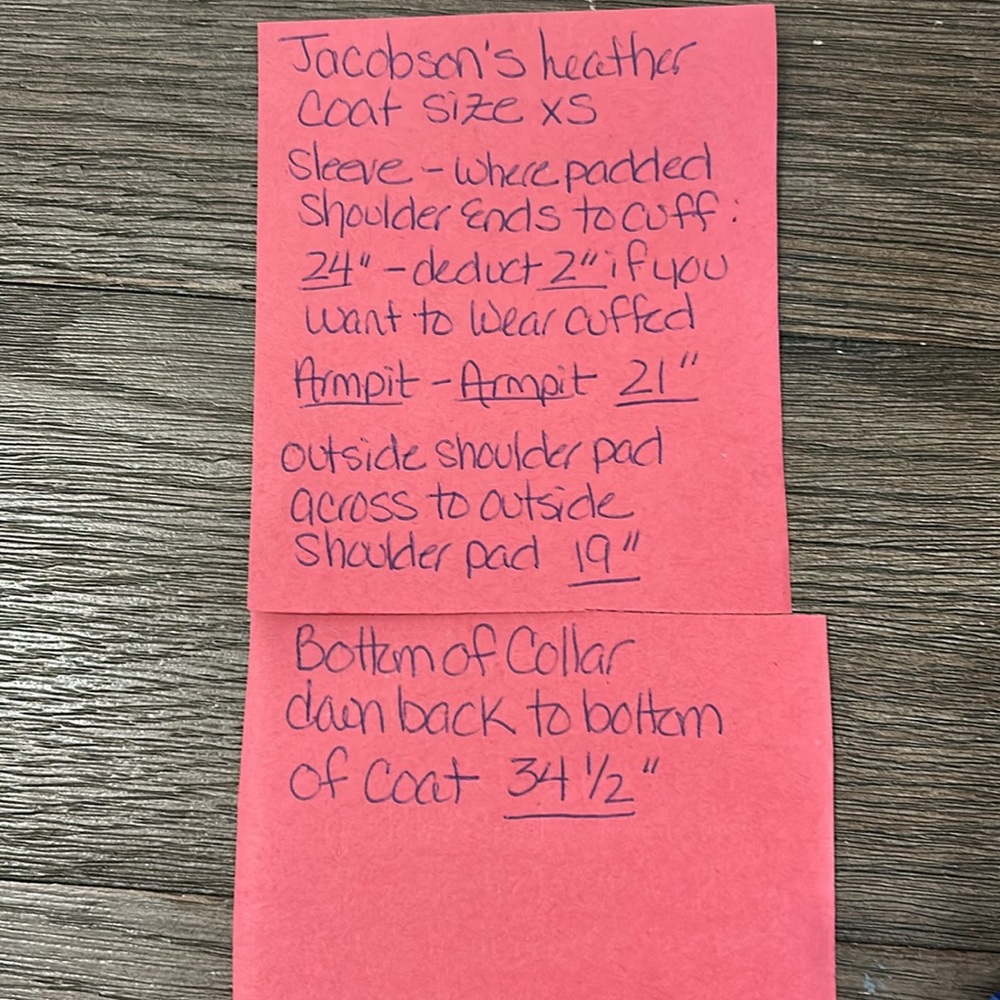 Jacobson's heather
Coat size xs
Sleeve - where padded
Shoulder Ends to cuff:
24" - deduct 2" if you
want to wear cuffed
Armpit - Armpit 21"
outside shoulder pad
across to outside
Shoulder pad 19"
Bottom of Collar
down back to bottom
of Coat 34 1/2"